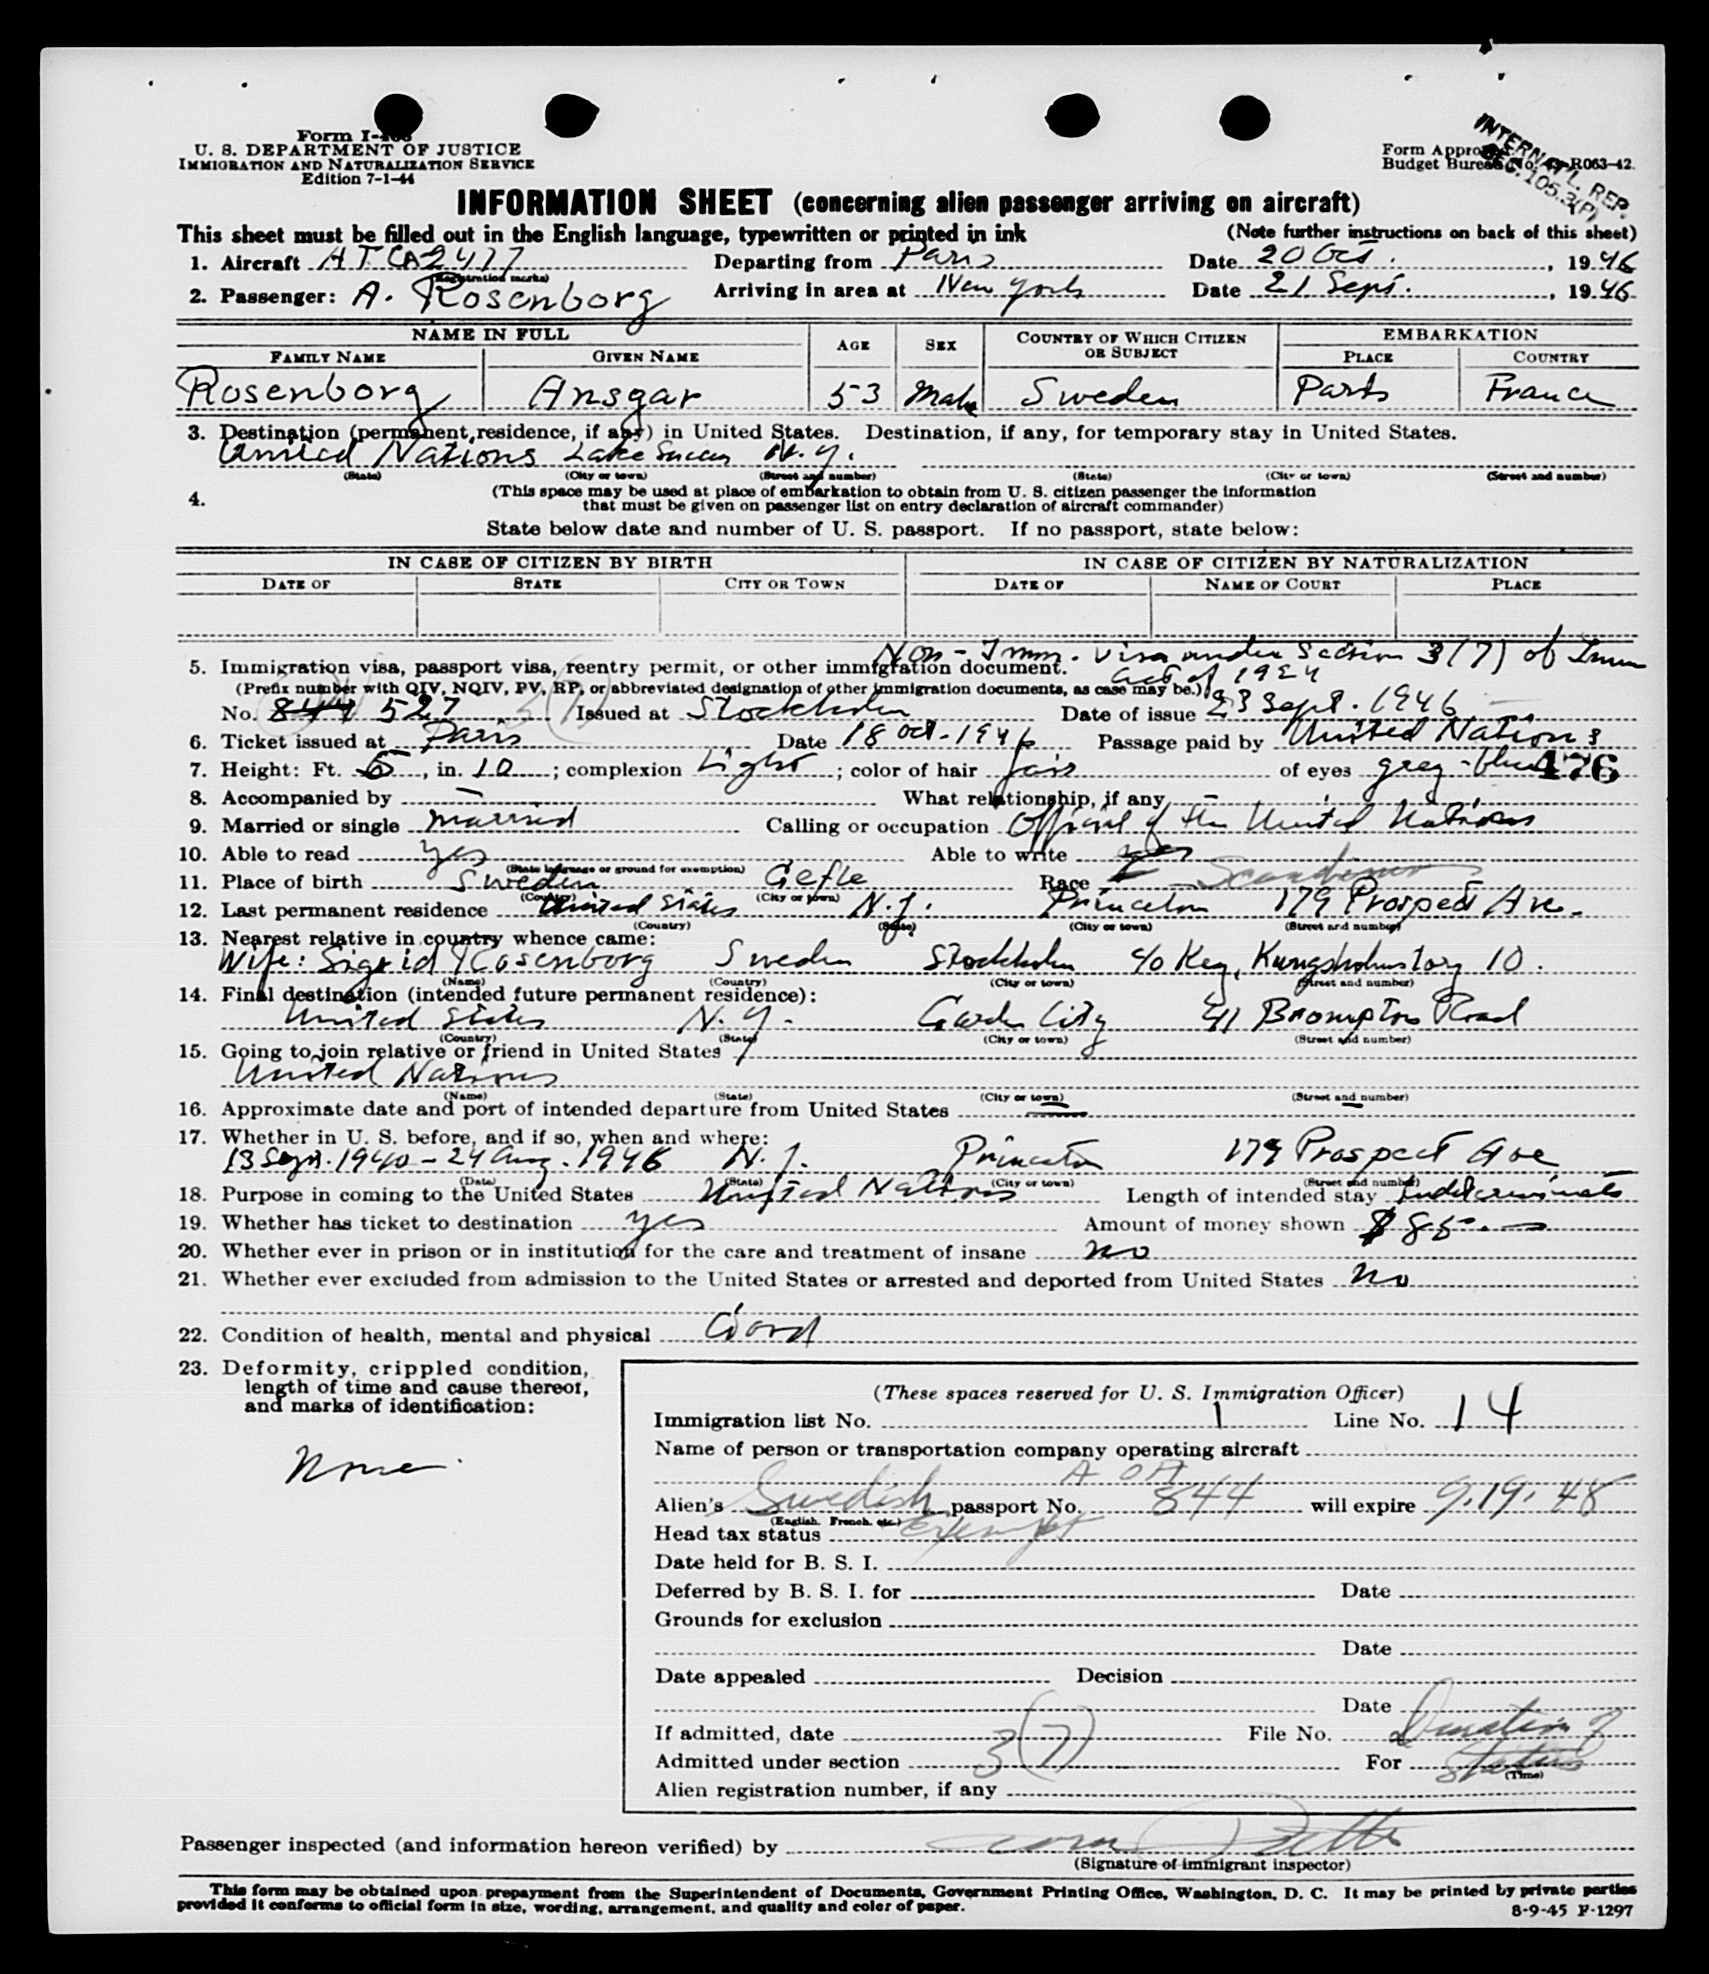 Form I-
U. S. DEPARTMENT OF JUSTICE
IMMIGRATION AND NATURALIZATION SERVICE
Edition 7-1-44
Form Appro
Budget Bureau No. 43-R063-42.
INTERNAT'L. REP.
SEC. 105.3(P)
INFORMATION SHEET (concerning alien passenger arriving on aircraft)
This sheet must be filled out in the English language, typewritten or printed in ink (Note further instructions on back of this sheet)
1. Aircraft ATCA2477 Departing from Paris Date 20 Oct. , 1946
(Registration marks)
2. Passenger: A. Rosenborg Arriving in area at New York Date 21 Sept. , 1946
NAME IN FULL AGE SEX COUNTRY OF WHICH CITIZEN OR SUBJECT EMBARKATION
FAMILY NAME GIVEN NAME PLACE COUNTRY
Rosenborg Ansgar 53 Male Sweden Paris France
3. Destination (permanent residence, if any) in United States. Destination, if any, for temporary stay in United States.
United Nations Lake Success N.Y.
(State) (City or town) (Street and number) (State) (City or town) (Street and number)
4. (This space may be used at place of embarkation to obtain from U. S. citizen passenger the information
that must be given on passenger list on entry declaration of aircraft commander)
State below date and number of U. S. passport. If no passport, state below:
IN CASE OF CITIZEN BY BIRTH IN CASE OF CITIZEN BY NATURALIZATION
DATE OF STATE CITY OR TOWN DATE OF NAME OF COURT PLACE
Non-Imm. visa under Section 3(7) of Imm
5. Immigration visa, passport visa, reentry permit, or other immigration document. Act of 1924
(Prefix number with QIV, NQIV, PV, RP, or abbreviated designation of other immigration documents, as case may be.)
No. 527 3(7) Issued at Stockholm Date of issue 23 Sept. 1946
6. Ticket issued at Paris Date 18 Oct. 1946 Passage paid by United Nations
7. Height: Ft. 5, in. 10; complexion Light; color of hair fair of eyes grey-blue 476
8. Accompanied by — What relationship, if any —
9. Married or single married Calling or occupation Official of the United Nations
10. Able to read yes Able to write yes
(State language or ground for exemption)
11. Place of birth Sweden Gefle Race Scandinav
(Country) (City or town)
12. Last permanent residence United States N.J. Princeton 179 Prospect Ave.
(Country) (State) (City or town) (Street and number)
13. Nearest relative in country whence came:
Wife: Sigrid Rosenborg Sweden Stockholm c/o Key, Kungsholmstorg 10.
(Name) (Country) (City or town) (Street and number)
14. Final destination (intended future permanent residence):
United States N.Y. Garden City 411 Brompton Road
(Country) (State) (City or town) (Street and number)
15. Going to join relative or friend in United States
United Nations
(Name) (State) (City or town) (Street and number)
16. Approximate date and port of intended departure from United States —
17. Whether in U. S. before, and if so, when and where:
13 Sept. 1940 - 24 Aug. 1946 N.J. Princeton 179 Prospect Ave
(Date) (State) (City or town) (Street and number)
18. Purpose in coming to the United States United Nations Length of intended stay indeterminate
19. Whether has ticket to destination yes Amount of money shown $ 85.—
20. Whether ever in prison or in institution for the care and treatment of insane no
21. Whether ever excluded from admission to the United States or arrested and deported from United States no
22. Condition of health, mental and physical Good
23. Deformity, crippled condition,
length of time and cause thereof,
and marks of identification:
None.
(These spaces reserved for U. S. Immigration Officer)
Immigration list No. 1 Line No. 14
Name of person or transportation company operating aircraft
A O A
Alien's Swedish passport No. 844 will expire 9.19.48
(English, French, etc.)
Head tax status Exempt
Date held for B. S. I.
Deferred by B. S. I. for Date
Grounds for exclusion
Date
Date appealed Decision
Date
If admitted, date File No. Duration of
Admitted under section 3(7) For Status
(Time)
Alien registration number, if any
Passenger inspected (and information hereon verified) by
(Signature of immigrant inspector)
This form may be obtained upon prepayment from the Superintendent of Documents, Government Printing Office, Washington, D. C. It may be printed by private parties
provided it conforms to official form in size, wording, arrangement, and quality and color of paper.
8-9-45 F-1297